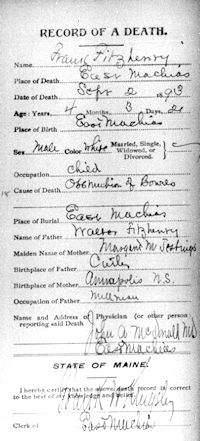 RECORD OF A DEATH.
Name Frank Fitzhenry
Place of Death East Machias
Date of Death Sept 2 1893
Age: Years, 4 Months, 3 Days, 21
Place of Birth East Machias
Sex Male Color White Married, Single, Widowed, or Divorced.
Occupation child
Cause of Death Obstruction of Bowels
Place of Burial East Machias
Name of Father Walter Fitzhenry
Maiden Name of Mother Margaret M
Birthplace of Father Cutler
Birthplace of Mother Annapolis N.S.
Occupation of Father Millman
Name and Address of Physician (or other person) reporting said Death
John A M.D.
East Machias
STATE OF MAINE.
I hereby certify that the above death record is correct
to the best of my knowledge and belief.
Clerk of East Machias